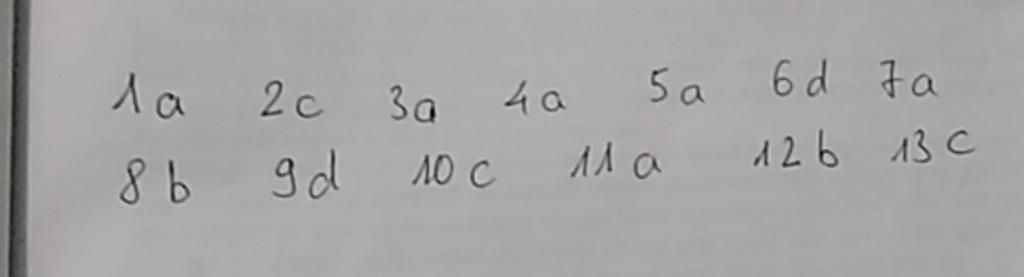 1a 2c 3a 4a 5a 6d 7a
8b 9d 10c 11a 12b 13c